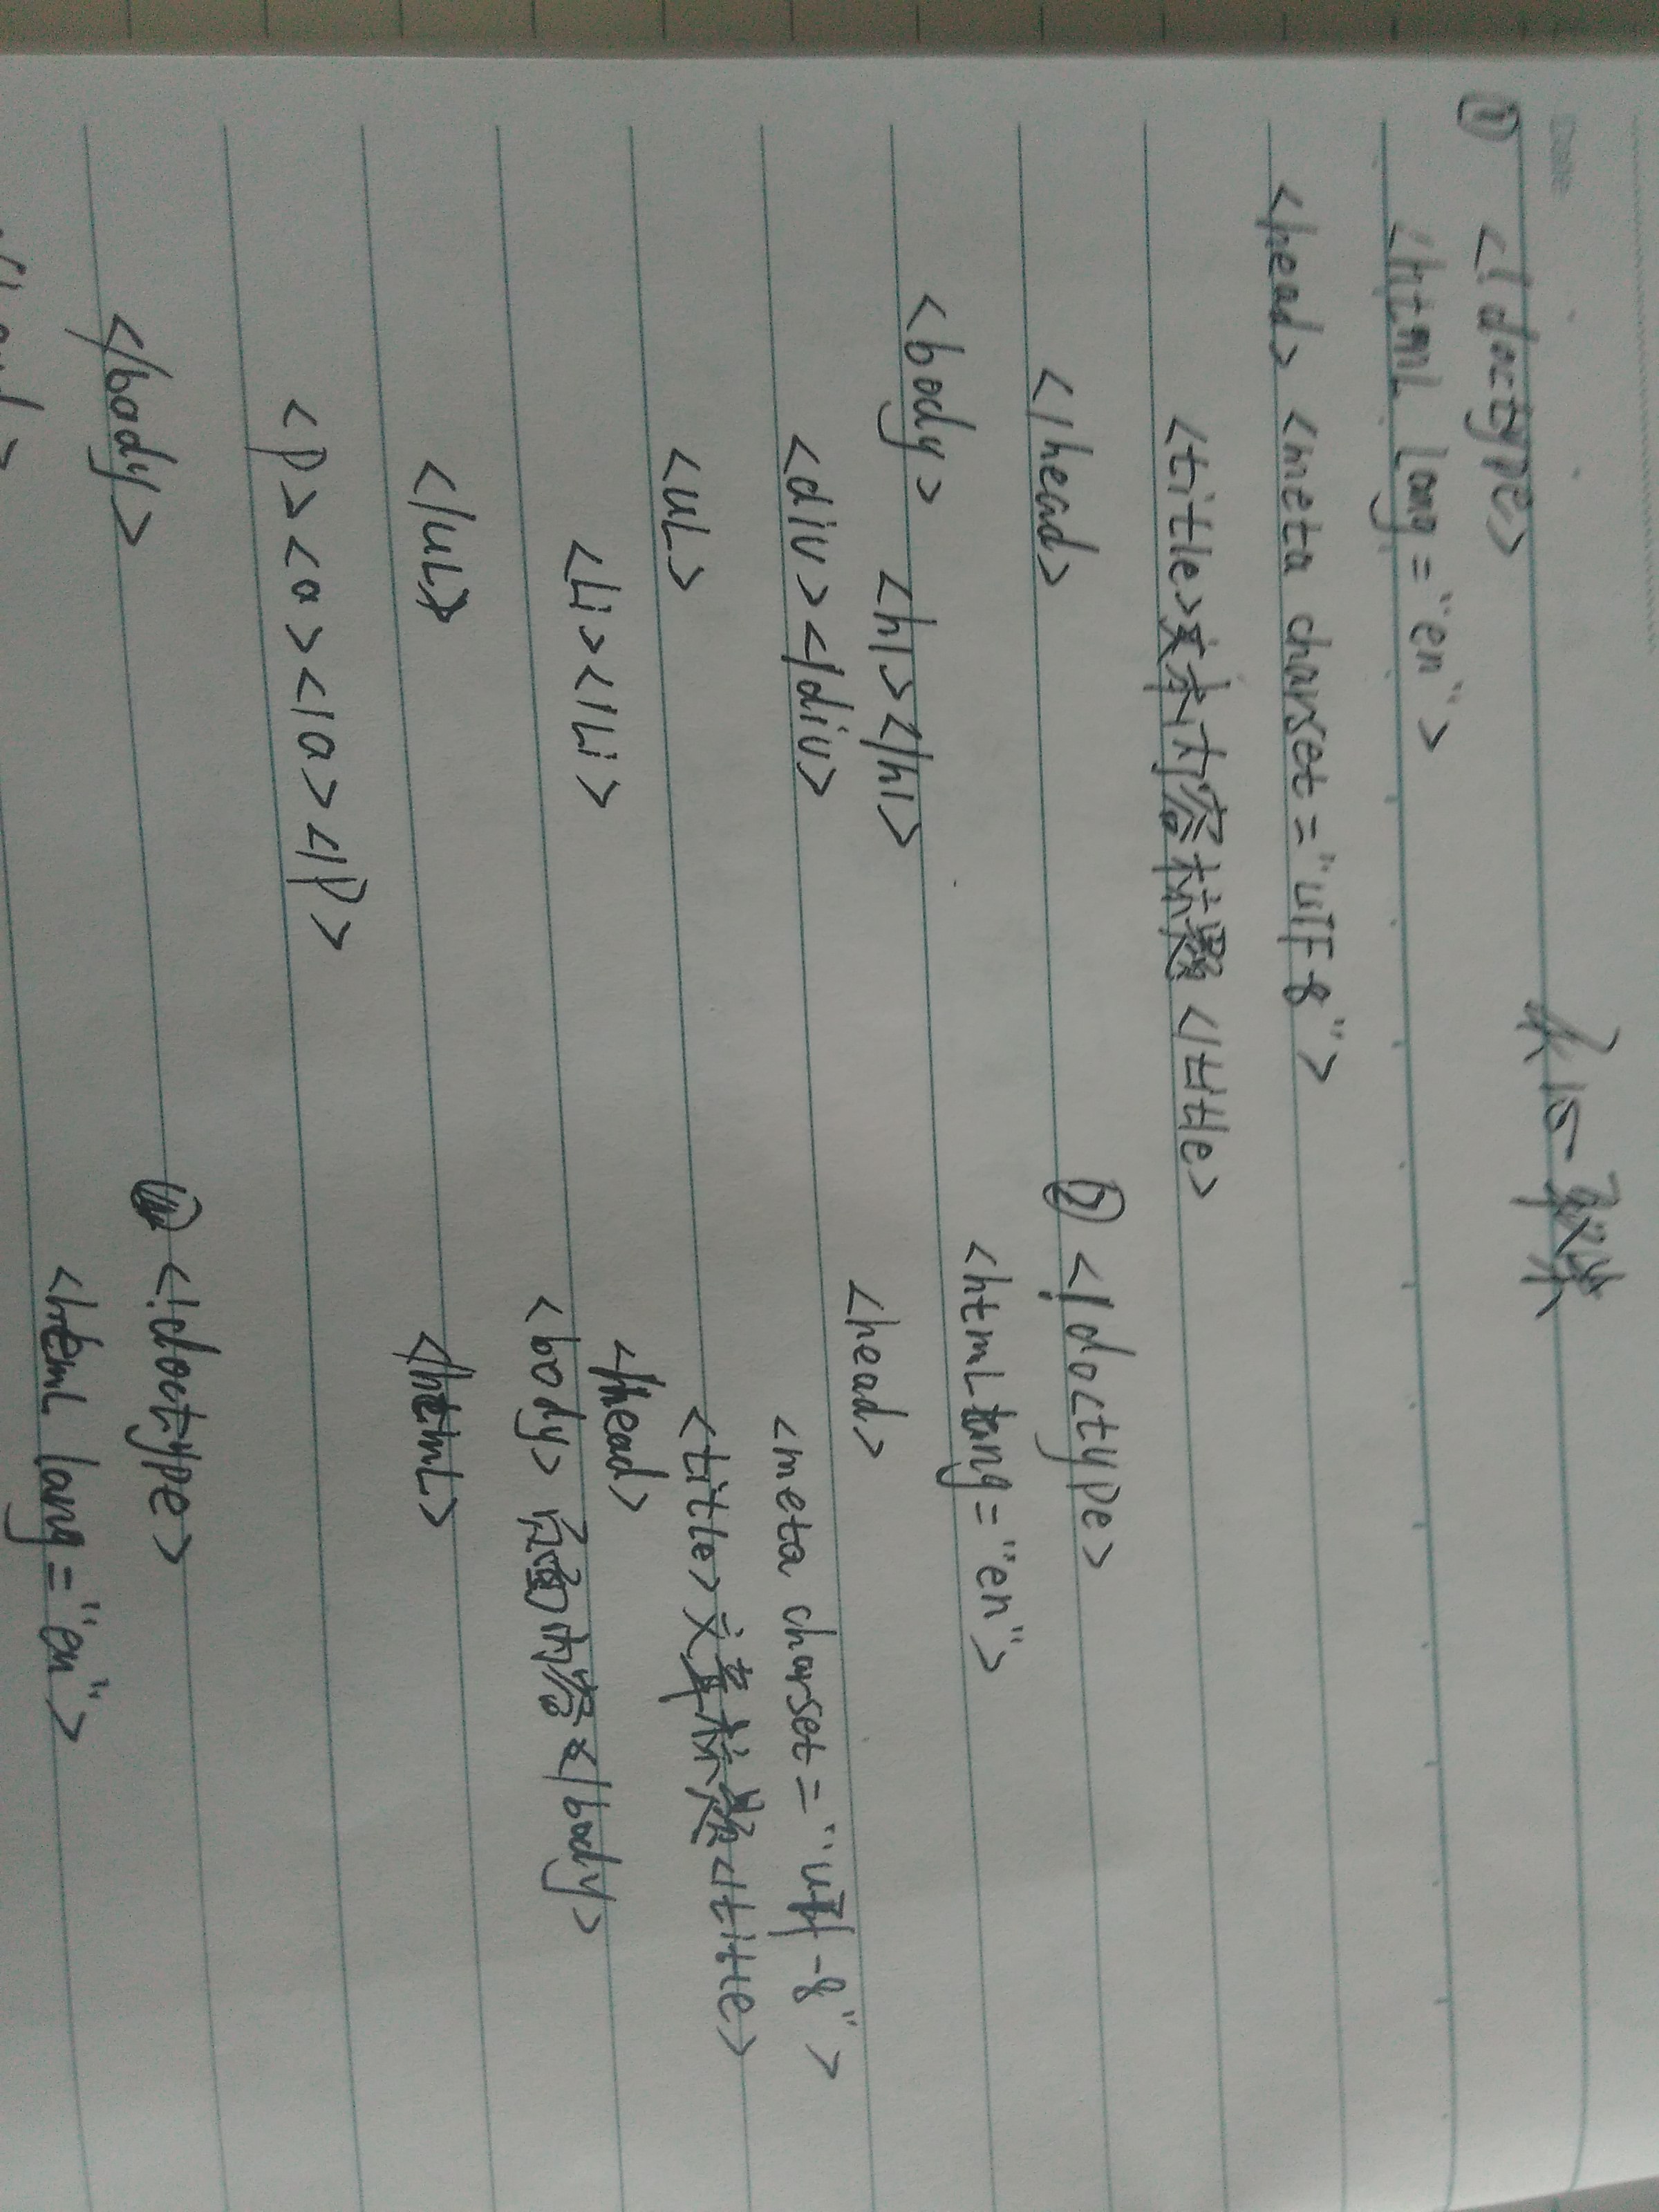 Date
① <!doctype>
<html lang="en">
<head> <meta charset="utf-8">
<title>文本内容标题</title>
</head>
<body>
<h1></h1>
<div></div>
<ul>
<li></li>
</ul>
<p><a></a></p>
</body>
② <!doctype>
<html lang="en">
<head>
<meta charset="utf-8">
<title>文章标题</title>
</head>
<body>页面内容</body>
</html>
<!doctype>
<html lang="en">